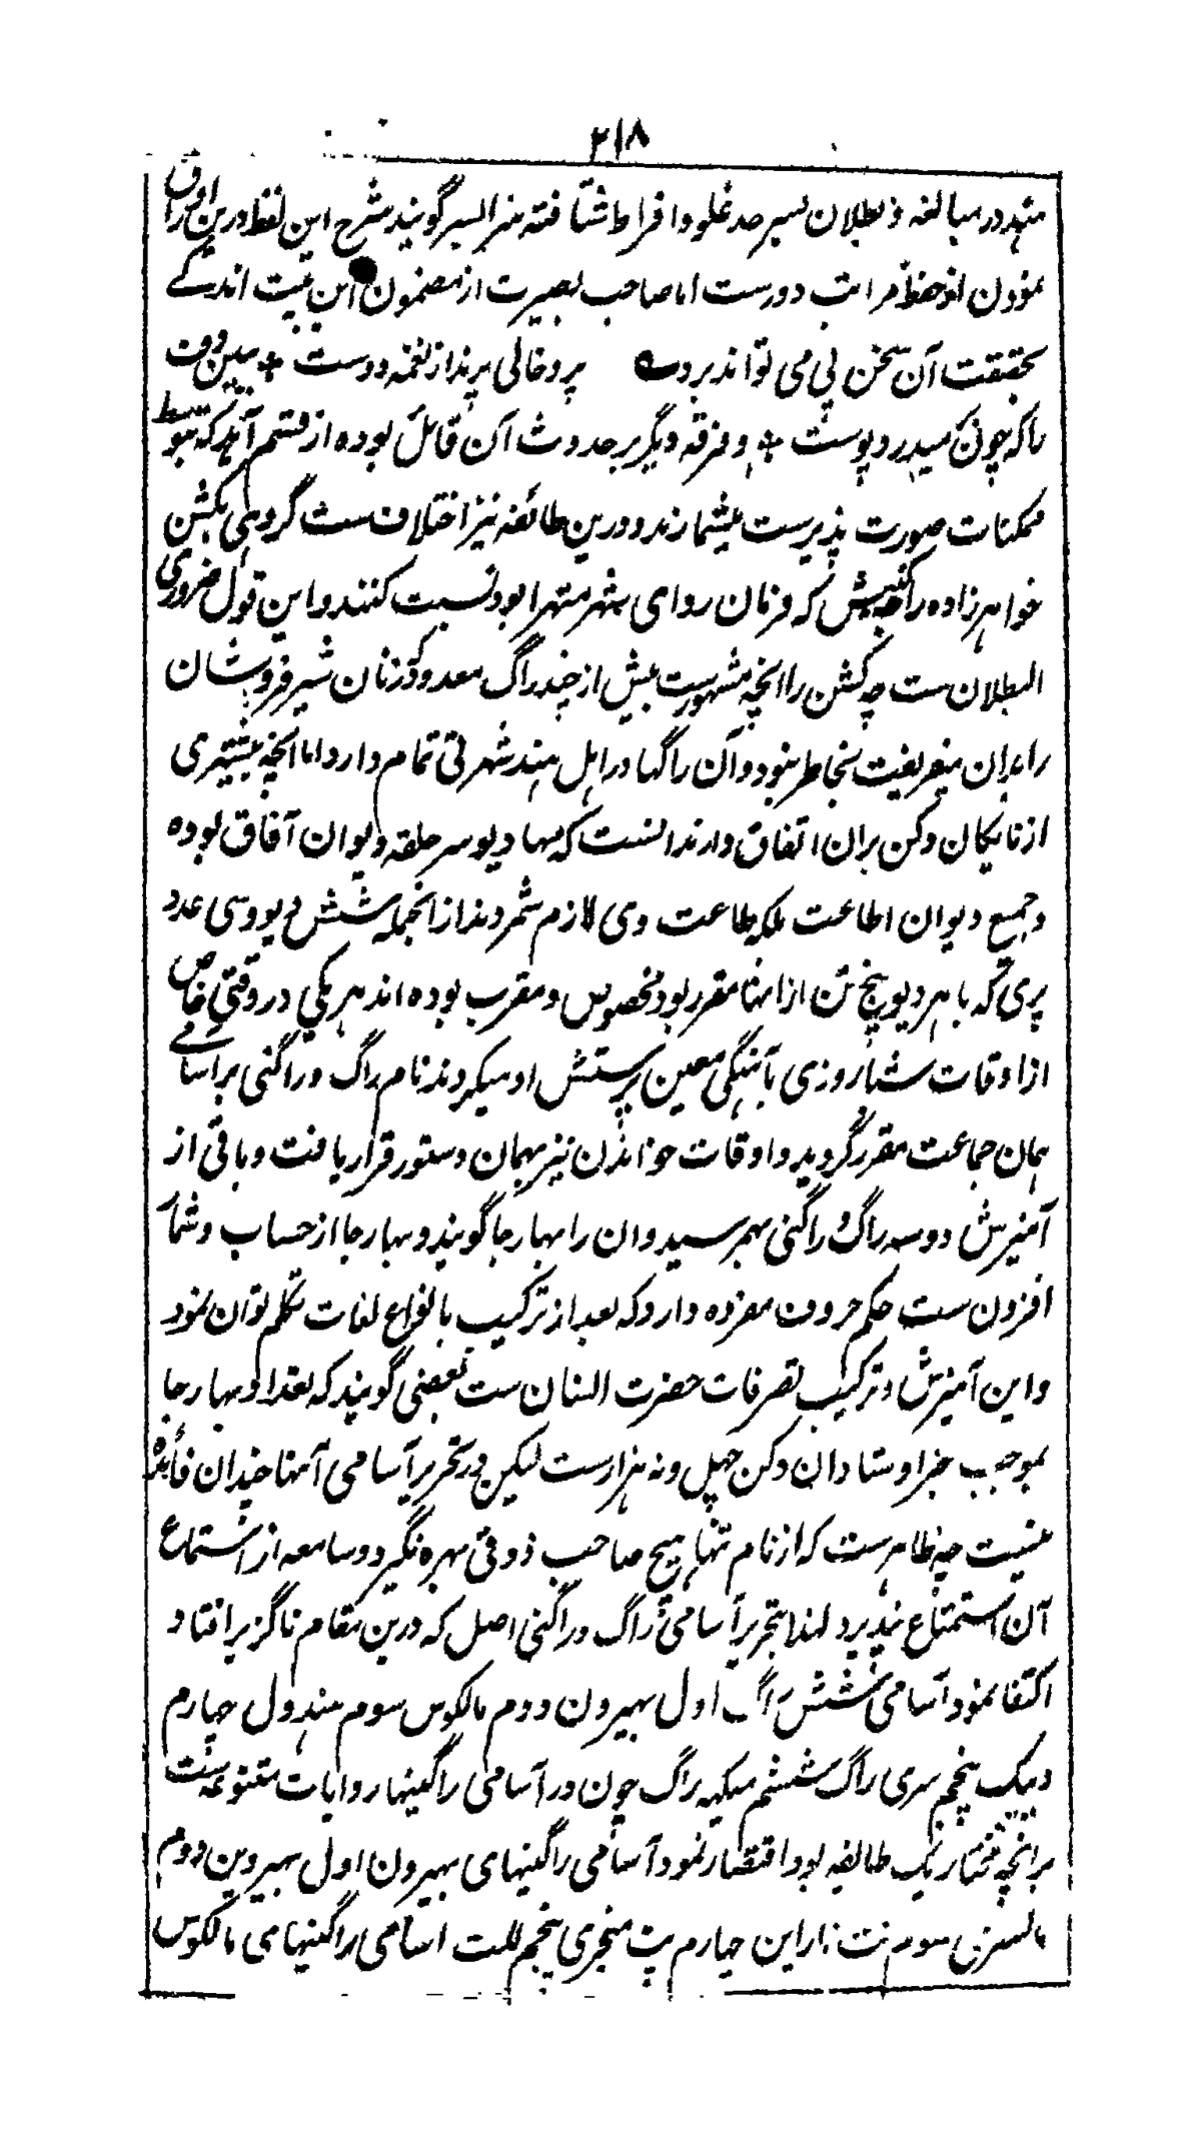 ۲۱۸
هنود در مبالغه و بطلان بسر حد غلو و افراط شتافته سر ایسر گویند شرح این لفظ درین اوراق
نمودن از حفظ مراتب دورست اما صاحب بصیرت از مضمون این بیت اندکے
بحقیقت آن سخن پی می تواند برد پر و خالی پرند از نغمه دوست
را که چون پوست و فرقه دیگر بر حدوث آن قائل بوده از قسم آنکه بتوسط
ممکنات صورت پذیرست میشمارند و درین طائفه نیز اختلاف ست گروهی بکشن
خواهرزاده راجه کنس که فرمان روای شهر متهرا بود نسبت کنند و این قول ضروری
البطلان ست چه کشن را انچه مشهورست بیش از چند راگ معدود که زنان شیرفروشان
را بدان میفریفت بخاطر نبود و آن راگها در اهل هند شهرتی تمام دارد اما انچه بیشتری
از نایکان دکن بران اتفاق دارند انست که مهادیو سر حلقه دیوان آفاق بوده
و جمیع دیوان اطاعت بلکه طاعت وی لازم شمردند ازانجمله شش دیو و سی عدد
پری که با هر دیو پنج تن ازانها مقرر بود مخصوص و مقرب بوده اند هر یکی در وقتی خاص
از اوقات شباروزی بآهنگی معین پرستش او میکردند نام راگ و راگنی بر اسامے
همان جماعت مقرر گردید و اوقات خواندن نیز بهمان دستور قرار یافت و باقی از
آمیزش دو سه راگ و راگنی بهم رسید و ان را بهارجا گویند و بهارجا از حساب و شمار
افزون ست حکم حروف مفرده دارد که بعد از ترکیب بانواع لغات تکلم توان نمود
و این آمیزش و ترکیب تصرفات حضرت انسان ست بعضی گویند که تعداد بهارجا
بموجب خبر اوستادان دکن چهل و نه هزارست لیکن در تحریر آسامی آنها چندان فائده
نیست چه ظاهرست که از نام تنها هیچ صاحب ذوقی بهره نگیرد و سامعه از استماع
آن استمتاع نپذیرد لهذا بتحریر آسامی راگ و راگنی اصل که درین مقام ناگزیر افتاد
اکتفا نمود اسامی شش راگ اول بهیرون دوم مالکوس سوم هندول چهارم
دیپک پنجم سری راگ ششم میگهه راگ چون در آسامی راگنیها روایات متنوعه ست
برانچه مختار یک طائفه بود اقتصار نمود آسامی راگنیهای بهیرون اول بهیروین دوم
مالسری سوم نت ناراین چهارم پت منجری پنجم للت اسامی راگنیهای مالکوس